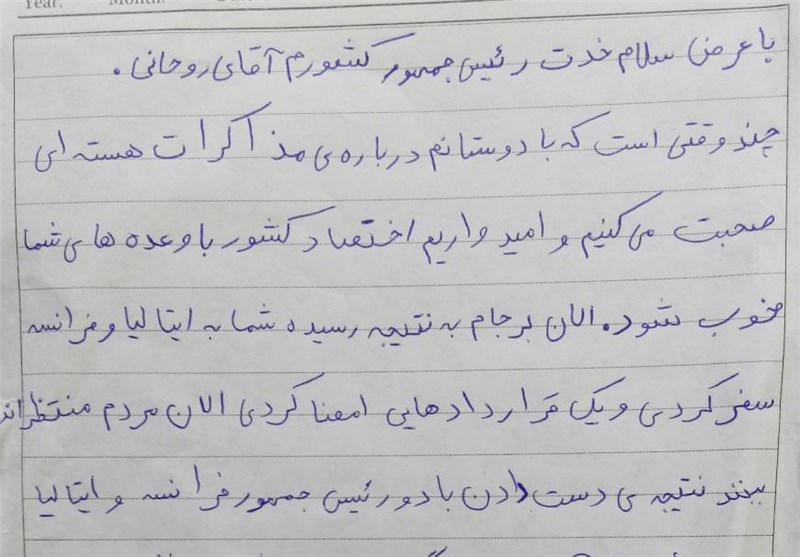 Year. Month.
با عرض سلام خدمت رئیس جمهور کشورم آقای روحانی .
چند وقتی است که با دوستانم درباره ی مذاکرات هسته ای
صحبت می کنیم و امید واریم اختصاد کشور با وعده های شما
خوب شود. الان برجام به نتیجه رسیده شما به ایتالیا و فرانسه
سفر کردی و یک قراردادهایی امضا کردی الان مردم منتظراند
ببیند نتیجه ی دست دادن با دو رئیس جمهور فرانسه و ایتالیا